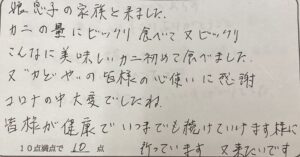 娘息子の家族と来ました.
カニの量にビックリ 食べて又ビックリ
こんなに美味しいカニ初めて食べました.
又"かどや"の皆様の心使いに感謝
コロナの中大変でしたね.
皆様が健康でいつまでも続けていけます様に
10点満点で 10 点 祈っています 又来たいです